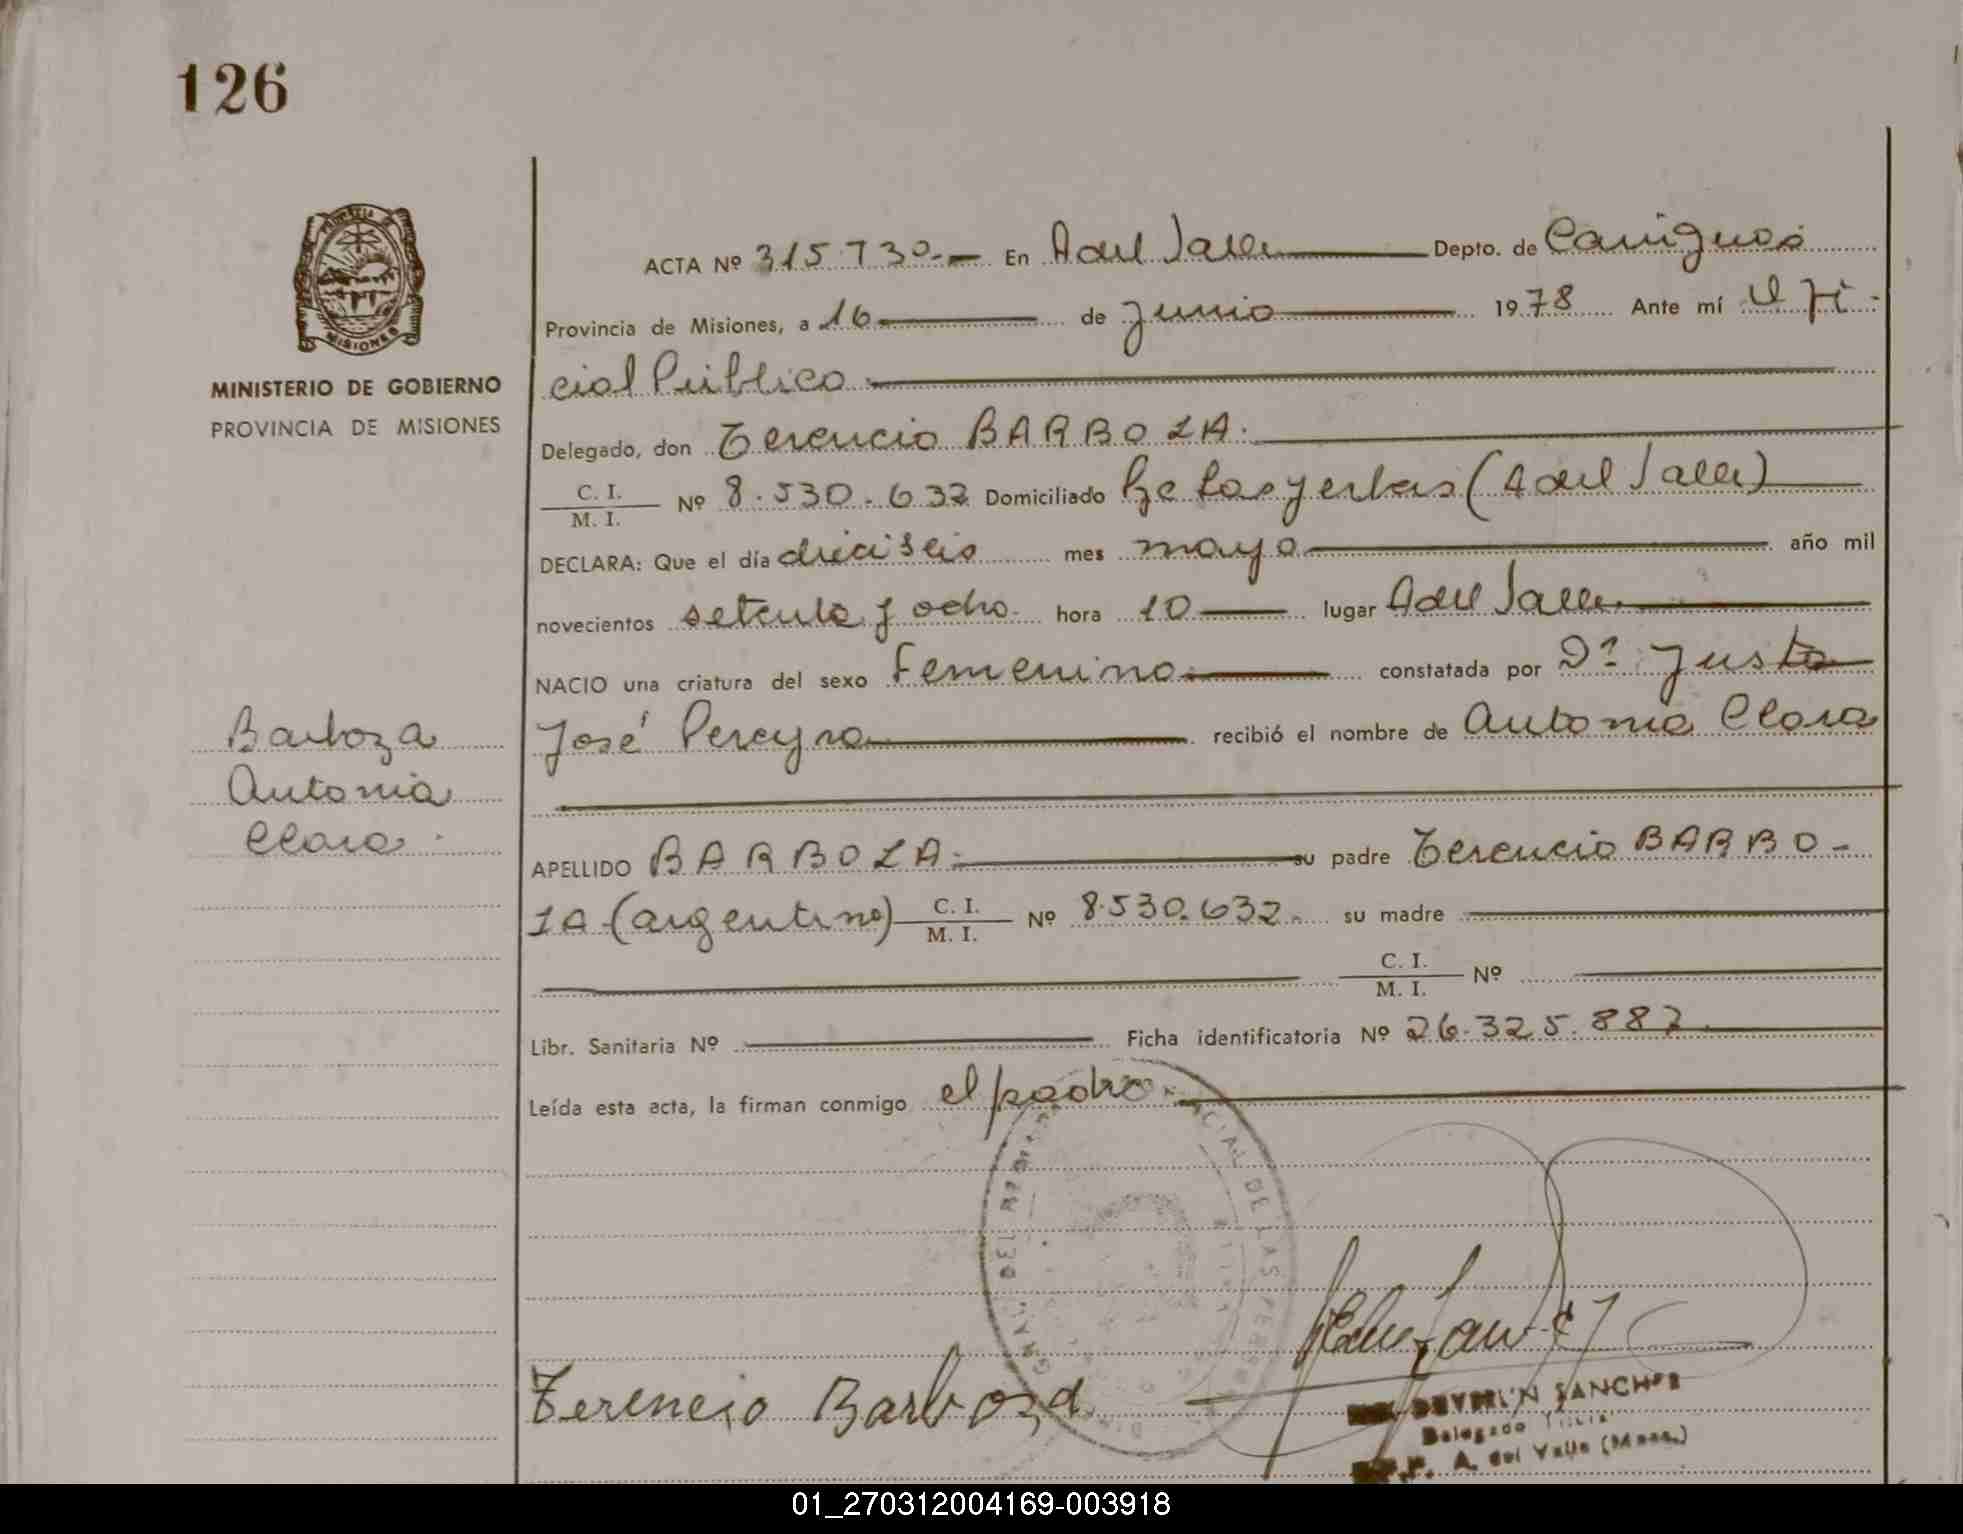 126
MINISTERIO DE GOBIERNO
PROVINCIA DE MISIONES
MISIONES
ACTA Nº 315.730.- En A del Valle Depto. de Cainguas
Provincia de Misiones, a 16 de Junio 1978 Ante mí Ofi-
cial Público
Delegado, don Terencio BARBOZA.
C. I.
M. I. Nº 8.530.632 Domiciliado Pje Las yerbas (A del Valle)
DECLARA: Que el día dieciseis mes mayo año mil
novecientos setenta y ocho. hora 10 lugar A del Valle
NACIO una criatura del sexo Femenino constatada por Dª. Justa
José Pereyra recibió el nombre de Antonia Clara
Barboza
Antonia
Clara.
APELLIDO BARBOZA.- su padre Terencio BARBO-
ZA (argentino) C. I.
M. I. Nº 8.530.632. su madre
C. I.
M. I. Nº
Libr. Sanitaria Nº Ficha identificatoria Nº 26.325.882
Leída esta acta, la firman conmigo el padre
Terencio Barboza
SANCHEZ
Delegado
A. del Valle (Mnes.)
01_270312004169-003918